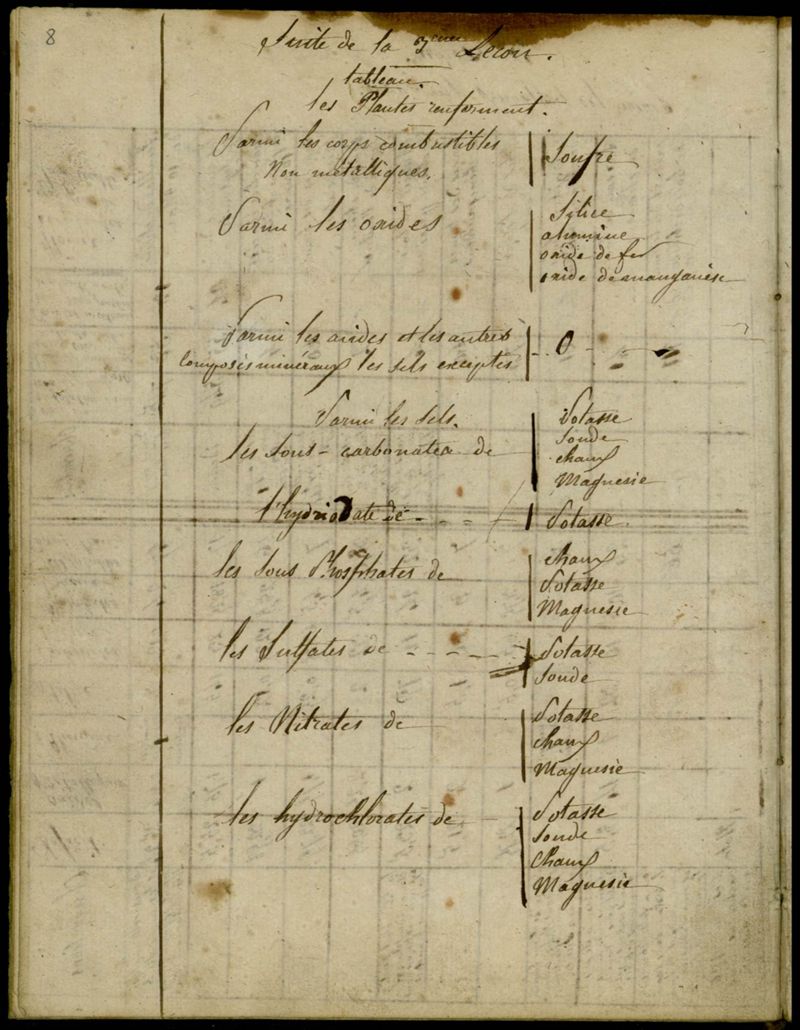 8
Suite de la 3eme Lecon.
tableau.
les Plantes renferment.
Parmi les corps combustibles
Non métalliques.
Soufre
Parmi les oxides
Silice
alumine
oxide de fer
oxide de manganèse
Parmi les acides et les autres
composés minéraux les sels exceptés
0
Parmi les sels.
les sous-carbonates de
Potasse
Soude
chaux
Magnesie
l'hydriodate de - - -
Potasse.
les sous Phosphates de
chaux
Potasse
Magnesie
les Sulfates de - - - - -
Potasse
Soude
les Nitrates de
Potasse
chaux
Magnesie
les hydrochlorates de
Potasse
Soude
chaux
Magnesie